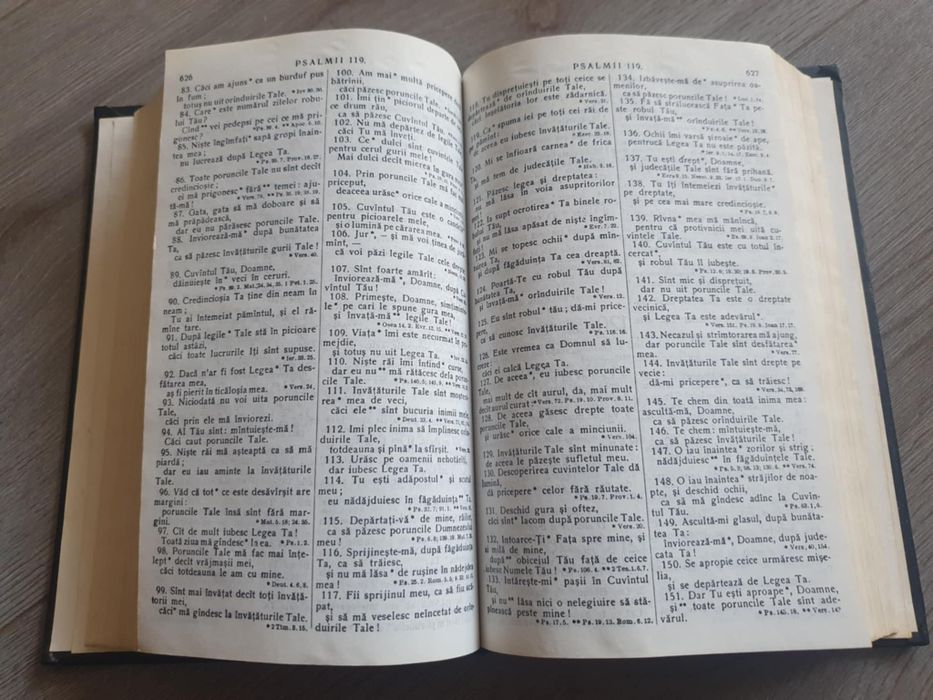 626
PSALMII 119.
83. Căci am ajuns* ca un burduf pus
în fum;
totuș nu uit orînduirile Tale. * Iov 30. 30.
84. Care* este numărul zilelor robu-
lui Tău?
Cînd** vei pedepsi pe cei ce mă pri-
gonesc?
85. Niște îngîmfați* sapă gropi înain-
tea mea;
nu lucrează după Legea Ta.
86. Toate poruncile Tale nu sînt decît
credincioșie;
ei mă prigonesc* fără** temei: aju-
tă-mă!
87. Gata, gata să mă doboare și să
mă prăpădească,
dar eu nu părăsesc poruncile Tale.
88. Înviorează-mă* după bunătatea
Ta,
ca să păzesc învățăturile gurii Tale!
* Vers. 40.
89. Cuvîntul Tău, Doamne,
dăinuiește* în veci în ceruri.
90. Credincioșia Ta ține din neam în
neam;
Tu ai întemeiat pămîntul, și el ră-
mîne tare.
91. După legile* Tale stă în picioare
totul astăzi,
căci toate lucrurile Îți sînt supuse.
* Ier. 33. 25.
92. Dacă n'ar fi fost Legea* Ta des-
fătarea mea,
aș fi pierit în ticăloșia mea.
* Vers. 24.
93. Niciodată nu voi uita poruncile
Tale,
căci prin ele mă înviorezi.
94. Al Tău sînt: mîntuiește-mă!
Căci caut poruncile Tale.
95. Niște răi mă așteaptă ca să mă
piardă;
dar eu iau aminte la învățăturile
Tale.
96. Văd că tot* ce este desăvîrșit are
margini:
poruncile Tale însă sînt fără mar-
gini.
* Mat. 5. 18; 24. 35.
97. Cît de mult iubesc Legea Ta!
Toată ziua mă gîndesc* la ea. * Ps. 1. 2.
98. Poruncile Tale mă fac mai înțe-
lept* decît vrăjmașii mei,
căci totdeauna le am cu mine.
* Deut. 4. 6, 8.
99. Sînt mai învățat decît toți învăță-
torii mei,
căci* mă gîndesc la învățăturile Tale.
* 2 Tim. 3. 15.
100. Am mai* multă pricepere
bătrînii,
căci păzesc poruncile Tale.
101. Îmi țin* piciorul departe de
ce drum rău,
ca să păzesc Cuvîntul Tău.
102. Nu mă depărtez de legile
căci Tu mă înveți.
103. Ce* dulci sînt cuvintele
pentru cerul gurii mele!
Mai dulci decît mierea în gura
104. Prin poruncile Tale mă fac
priceput,
deaceea urăsc* orice cale a
105. Cuvîntul Tău este o candelă
pentru picioarele mele,
și o lumină pe cărarea mea.
106. Jur*, — și mă voi ținea de
mînt, —
că voi păzi legile Tale cele drepte.
107. Sînt foarte amărît:
înviorează-mă*, Doamne, după
vîntul Tău!
108. Primește, Doamne,
le* pe cari le spune gura mea,
și învață-mă** legile Tale!
109. Viața* îmi este necurmat în
mejdie,
și totuș nu uit Legea Ta.
110. Niște răi îmi întind* curse,
dar eu nu** mă rătăcesc dela porun-
cile Tale.
111. Învățăturile Tale sînt moșteni-
rea* mea de veci,
căci ele** sînt bucuria inimii mele.
112. Îmi plec inima să împlinesc
duirile Tale,
totdeauna și pînă* la sfîrșit.
113. Urăsc pe oamenii nehotărîți,
dar iubesc Legea Ta.
114. Tu ești adăpostul* și scutul
meu;
eu nădăjduiesc în făgăduința** Ta
115. Depărtați-vă* de mine, răilor,
ca să păzesc poruncile Dumnezeului
meu!
116. Sprijinește-mă, după făgăduința
Ta, ca să trăiesc,
și nu mă lăsa* de rușine în nădejdea
mea!
117. Fii sprijinul meu, ca să fiu scă-
pat,
și să mă veselesc neîncetat de orîn-
duirile Tale!
PSALMII 119.
627
118. Tu disprețuiești pe toți ceice se
de orînduirile Tale,
înșelătoria lor este zădarnică.
* Vers. 21.
119. Ca* spuma iei pe toți cei răi de
de aceea eu iubesc învățăturile Tale.
120. Mi se înfioară carnea* de frica
și mă tem de judecățile Tale.
* Hab. 3. 16.
121. Păzesc legea și dreptatea:
nu mă lăsa în voia asupritorilor
122. Ia supt ocrotirea* Ta binele ro-
și nu mă lăsa apăsat de niște îngîm-
* Evr. 7. 22.
123. Mi se topesc ochii* după mîn-
și după făgăduința Ta cea dreaptă.
* Vers. 81, 82.
124. Poartă-Te cu robul Tău după
bunătatea Ta,
și învață-mă* orînduirile Tale!
* Vers. 12.
125. Eu sînt robul* tău; dă-mi price-
pere,
ca să cunosc învățăturile Tale.
* Ps. 116. 16.
126. Este vremea ca Domnul să lu-
creze:
căci ei calcă Legea Ta.
127. De aceea*, eu iubesc poruncile
Tale,
mai mult de cît aurul, da, mai mult
decît aurul curat.
* Vers. 72. Ps. 19. 10. Prov. 8. 11.
128. De aceea găsesc drepte toate
poruncile Tale,
și urăsc* orice cale a minciunii.
* Vers. 104.
129. Învățăturile Tale sînt minunate:
de aceea le păzește sufletul meu.
130. Descoperirea cuvintelor Tale dă
lumină,
dă pricepere* celor fără răutate.
* Ps. 19. 7. Prov. 1. 4.
131. Deschid gura și oftez,
căci sînt* lacom după poruncile Tale.
* Vers. 20.
132. Întoarce-Ți* Fața spre mine, și
ai milă de mine,
după** obiceiul Tău față de ceice
iubesc Numele Tău!
* Ps. 106. 4. ** 2 Tes. 1. 6, 7.
133. Întărește-mi* pașii în Cuvîntul
Tău,
și nu** lăsa nici o nelegiuire să stă-
pînească peste mine!
* Ps. 17. 5. ** Ps. 19. 13. Rom. 6. 12.
134. Izbăvește-mă* de asuprirea oa-
menilor,
ca să păzesc poruncile Tale! * Luc. 1. 74.
135. Fă să strălucească Fața* Ta pe-
ste robul Tău,
și învață-mă** orînduirile Tale!
* Ps. 4. 6. ** Vers. 12, 26.
136. Ochii îmi varsă șiroaie* de ape,
pentrucă Legea Ta nu este păzită.
137. Tu ești drept*, Doamne,
și judecățile Tale sînt fără prihană.
138. Tu Îți întemeiezi învățăturile*
pe dreptate,
și pe cea mai mare credincioșie.
* Ps. 19. 7, 8, 9.
139. Rîvna* mea mă mănîncă,
pentru că protivnicii mei uită cu-
vintele Tale.
* Ps. 69. 9. Ioan 2. 17.
140. Cuvîntul Tău este cu totul în-
cercat*,
și robul Tău îl iubește.
* Ps. 12. 6; 18. 30; 19. 8. Prov. 30. 5.
141. Sînt mic și disprețuit,
dar nu uit poruncile Tale.
142. Dreptatea Ta este o dreptate
vecinică,
și Legea Ta este adevărul*.
* Vers. 151. Ps. 19. 9. Ioan 17. 17.
143. Necazul și strîmtorarea mă ajung,
dar poruncile Tale sînt desfătarea*
mea.
* Vers. 77.
144. Învățăturile Tale sînt drepte pe
vecie:
dă-mi pricepere*, ca să trăiesc!
* Vers. 34, 73, 169.
145. Te chem din toată inima mea:
ascultă-mă, Doamne,
ca să păzesc orînduirile Tale.
146. Te chem: mîntuiește-mă,
ca să păzesc învățăturile Tale!
147. O iau înaintea* zorilor și strig;
nădăjduiesc** în făgăduințele Tale.
* Ps. 5. 3; 88. 13; 130. 6. ** Vers. 74.
148. O iau înaintea* străjilor de noa-
pte, și deschid ochii,
ca să mă gîndesc adînc la Cuvîn-
tul Tău.
* Ps. 63. 1, 6.
149. Ascultă-mi glasul, după bunăta-
tea Ta:
înviorează-mă*, Doamne, după jude-
cata Ta!
* Vers. 40, 154.
150. Se apropie ceice urmăresc mișe-
lia,
și se depărtează de Legea Ta.
151. Dar Tu ești aproape*, Doamne,
și** toate poruncile Tale sînt ade-
vărul.
* Ps. 145. 18. ** Vers. 142